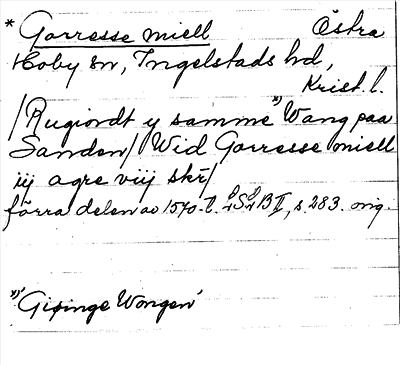 * Gorresse miell Östra
Hoby sn, Ingelstads hd,
Krist. l.
/Rugiordt y samme *) Wang paa
Sanden/ Wid Gorresse miell
iij agre viij skr/
förra delen av 1570-t. LSLB II, s. 283. orig.
*) 'Gisinge Wongen'